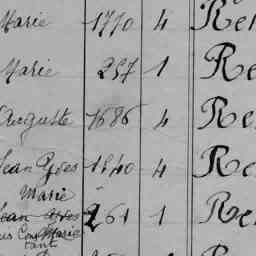 Marie 1770 4 Re
Marie 257 1 Re
Auguste 1686 4 Re
Jean Yves 1840 4 Re
Marie
Jean Yves 261 1 Re
Marie